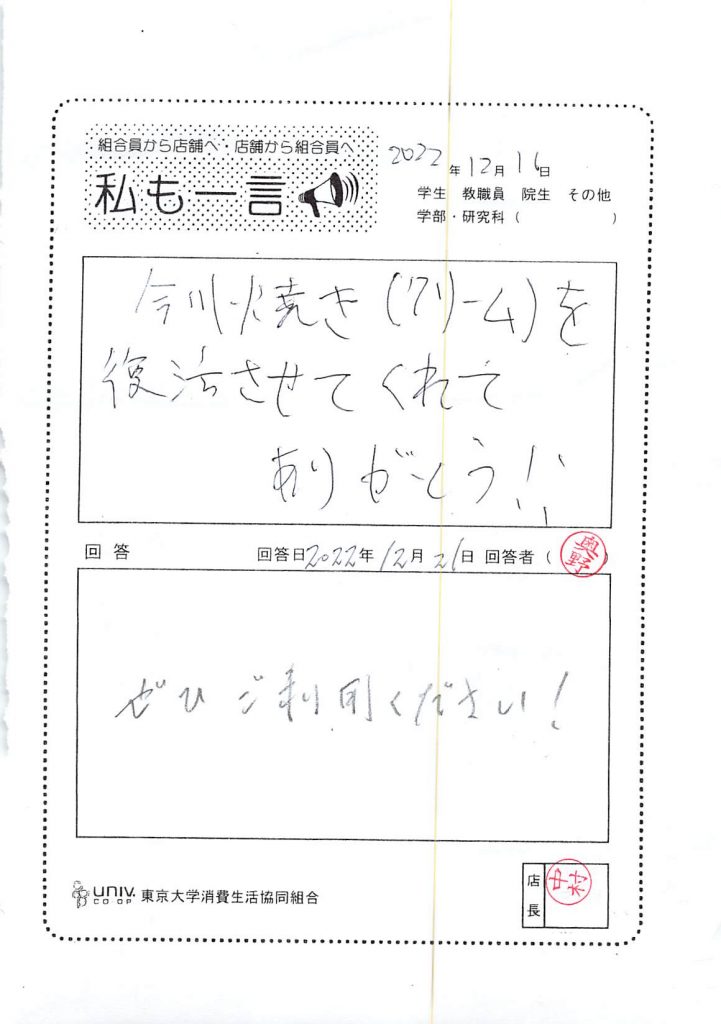 組合員から店舗へ・店舗から組合員へ
私も一言
2022年12月16日
学生 教職員 院生 その他
学部・研究科（ ）
今川焼き(クリーム)を
復活させてくれて
ありがとう!!
回答 回答日2022年12月21日 回答者（奥野）
ぜひご利用ください!
店長 中村
univ. CO-OP 東京大学消費生活協同組合